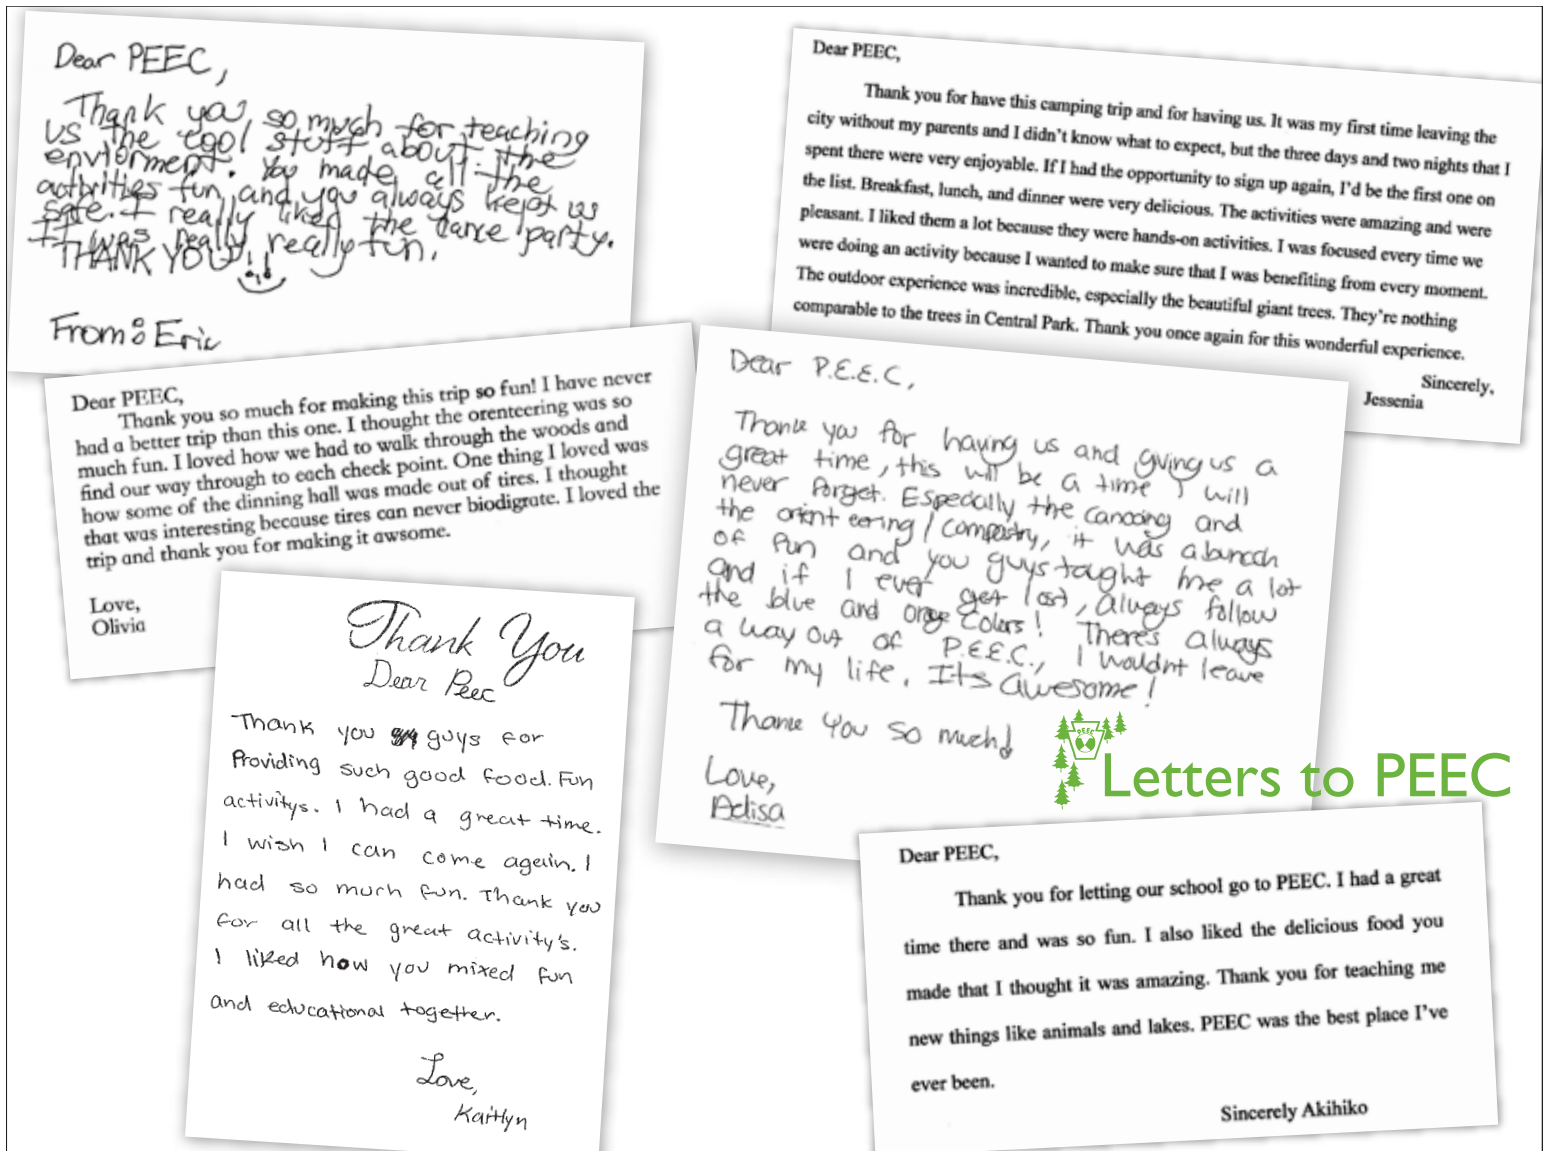 Dear PEEC,
Thank you so much for teaching
us the cool stuff about the
enviorment. You made all the
actibrities fun, and you always kept us
safe. I really liked the dance party.
It was really really fun.
THANK YOU!!
From: Eric
Dear PEEC,
Thank you for have this camping trip and for having us. It was my first time leaving the
city without my parents and I didn't know what to expect, but the three days and two nights that I
spent there were very enjoyable. If I had the opportunity to sign up again, I'd be the first one on
the list. Breakfast, lunch, and dinner were very delicious. The activities were amazing and were
pleasant. I liked them a lot because they were hands-on activities. I was focused every time we
were doing an activity because I wanted to make sure that I was benefiting from every moment.
The outdoor experience was incredible, especially the beautiful giant trees. They're nothing
comparable to the trees in Central Park. Thank you once again for this wonderful experience.
Sincerely,
Jessenia
Dear PEEC,
Thank you so much for making this trip so fun! I have never
had a better trip than this one. I thought the orenteering was so
much fun. I loved how we had to walk through the woods and
find our way through to each check point. One thing I loved was
how some of the dinning hall was made out of tires. I thought
that was interesting because tires can never biodigrate. I loved the
trip and thank you for making it awsome.
Love,
Olivia
Dear P.E.E.C,
Thank you for having us and giving us a
great time, this will be a time I will
never forget. Especially the canoeing and
the orienteering/compostry, it was abunch
of fun and you guys taught me a lot
and if I ever get lost, always follow
the blue and orage colors! There's always
a way out of P.E.E.C., I wouldnt leave
for my life. Its awesome!
Thank you so much!
Love,
Adisa
Thank You
Dear Peec
Thank you guys for
Providing such good food. Fun
activitys. I had a great time.
I wish I can come again. I
had so much fun. Thank you
for all the great activity's.
I liked how you mixed fun
and educational together.
Love,
Kaitlyn
PEEC
Letters to PEEC
Dear PEEC,
Thank you for letting our school go to PEEC. I had a great
time there and was so fun. I also liked the delicious food you
made that I thought it was amazing. Thank you for teaching me
new things like animals and lakes. PEEC was the best place I've
ever been.
Sincerely Akihiko